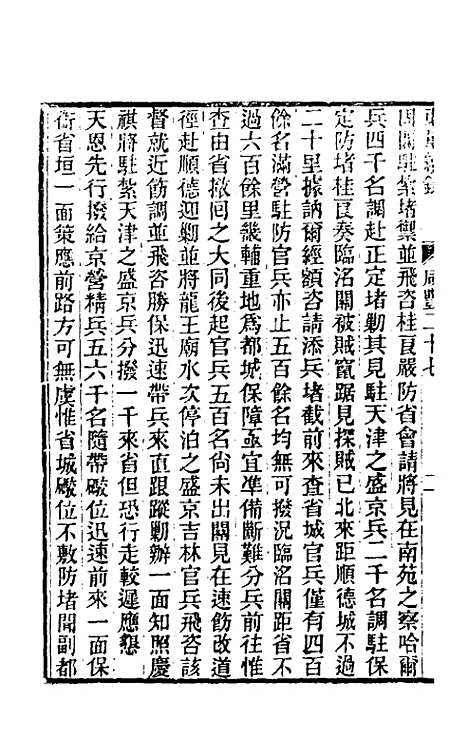 咸豐二十七
固關駐紮堵禦並飛咨桂良嚴防省會請將見在南苑之察哈爾
兵四千名調赴正定堵勦其見駐天津之盛京兵二千名調駐保
定防堵桂良奏臨洺關被賊竄踞見探賊已北來距順德城不過
二十里據訥爾經額咨請添兵堵截前來查省城官兵僅有四百
餘名滿營駐防官兵亦止五百餘名均無可撥況臨洺關距省不
過六百餘里畿輔重地爲都城保障亟宜準備斷難分兵前往惟
查由省撤回之大同後起官兵五百名尙未出關見在速飭改道
徑赴順德迎勦並將龍王廟水次停泊之盛京吉林官兵飛咨該
督就近飭調並飛咨勝保迅速帶兵來直跟蹤勦辦一面知照慶
祺將駐紮天津之盛京兵分撥一千來省但恐行走較遲應懇
天恩先行撥給京營精兵五六千名隨帶礮位迅速前來一面保
衞省垣一面策應前路方可無虞惟省城礮位不敷防堵聞副都